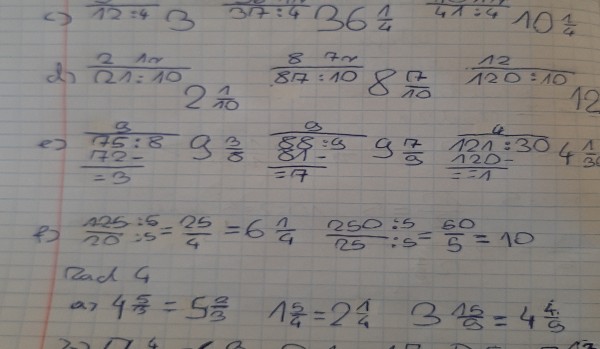 c) 12:4 3 37:4 36 1/4 41:4 10 1/4
d) 2 1r 8 7r 12
21:10 2 1/10 87:10 8 7/10 120:10 12
e) 9 9 4
75:8 9 3/8 88:9 9 7/9 121:30 4
72- 81- 120-
=3 =7 ==1
f) 125:5/20:5 = 25/4 = 6 1/4 250:5/25:5 = 50/5 = 10
Zad 4
a) 4 5/3 = 5 2/3 1 5/4 = 2 1/4 3 15/9 = 4 4/9